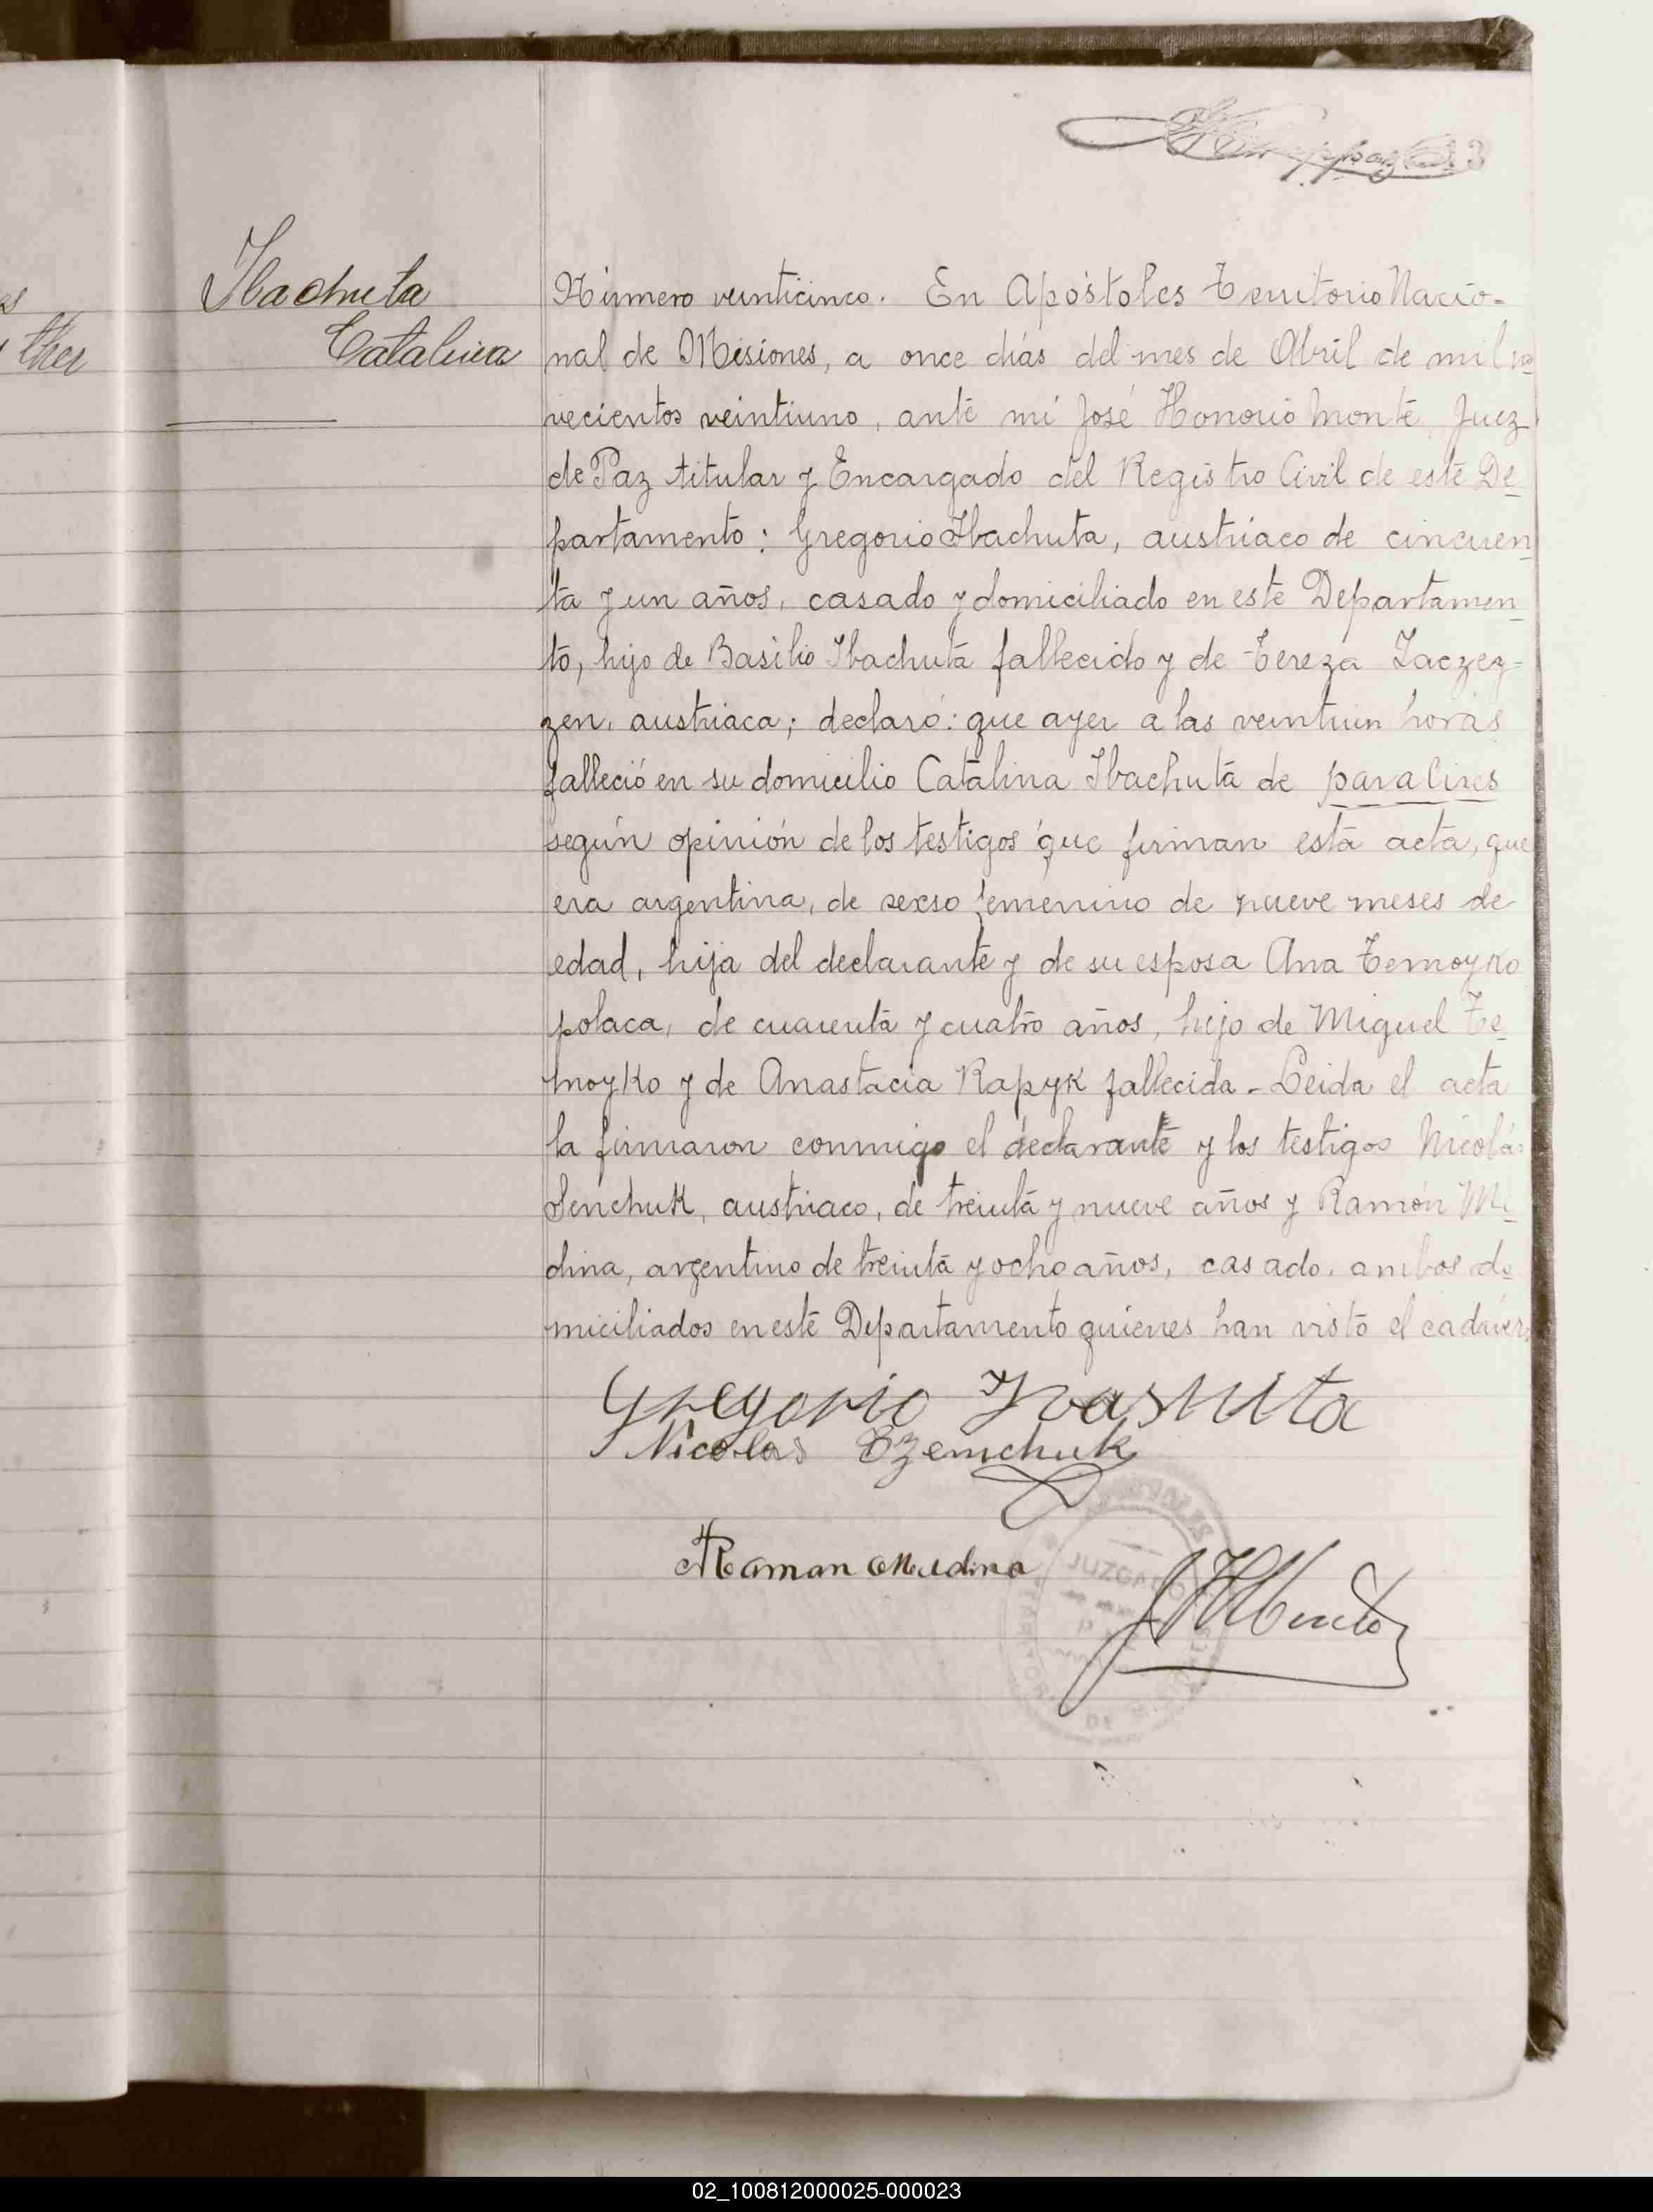 Ibachuta
Catalina
ther
Número veinticinco. En Apóstoles Territorio Nacio-
nal de Misiones, a once días del mes de Abril de mil no
vecientos veintiuno, ante mí José Honorio Monte, Juez
de Paz titular y Encargado del Registro Civil de este De
partamento: Gregorio Ibachuta, austriaco de cincuen
ta y un años, casado y domiciliado en este Departamen
to, hijo de Basilio Ibachuta fallecido y de Tereza Zaczez=
zen, austriaca; declaró: que ayer a las veintiun horas
falleció en su domicilio Catalina Ibachuta de paralises
según opinión de los testigos que firman esta acta, que
era argentina, de sexso femenino de nueve meses de
edad, hija del declarante y de su esposa Ana Temoyko
polaca, de cuarenta y cuatro años, hijo de Miguel Te
moyko y de Anastacia Rapyk fallecida - Leida el acta
la firmaron conmigo el declarante y los testigos Nicolás
Senchuk, austriaco, de treinta y nueve años y Ramón Me
dina, argentino de treinta y ocho años, casado, ambos do
miciliados en este Departamento quienes han visto el cadáver.
Gregorio Ivasiuta
Nicolas Szemchuk
Raman Medina
JHMonte
JUZGADO
02_100812000025-000023